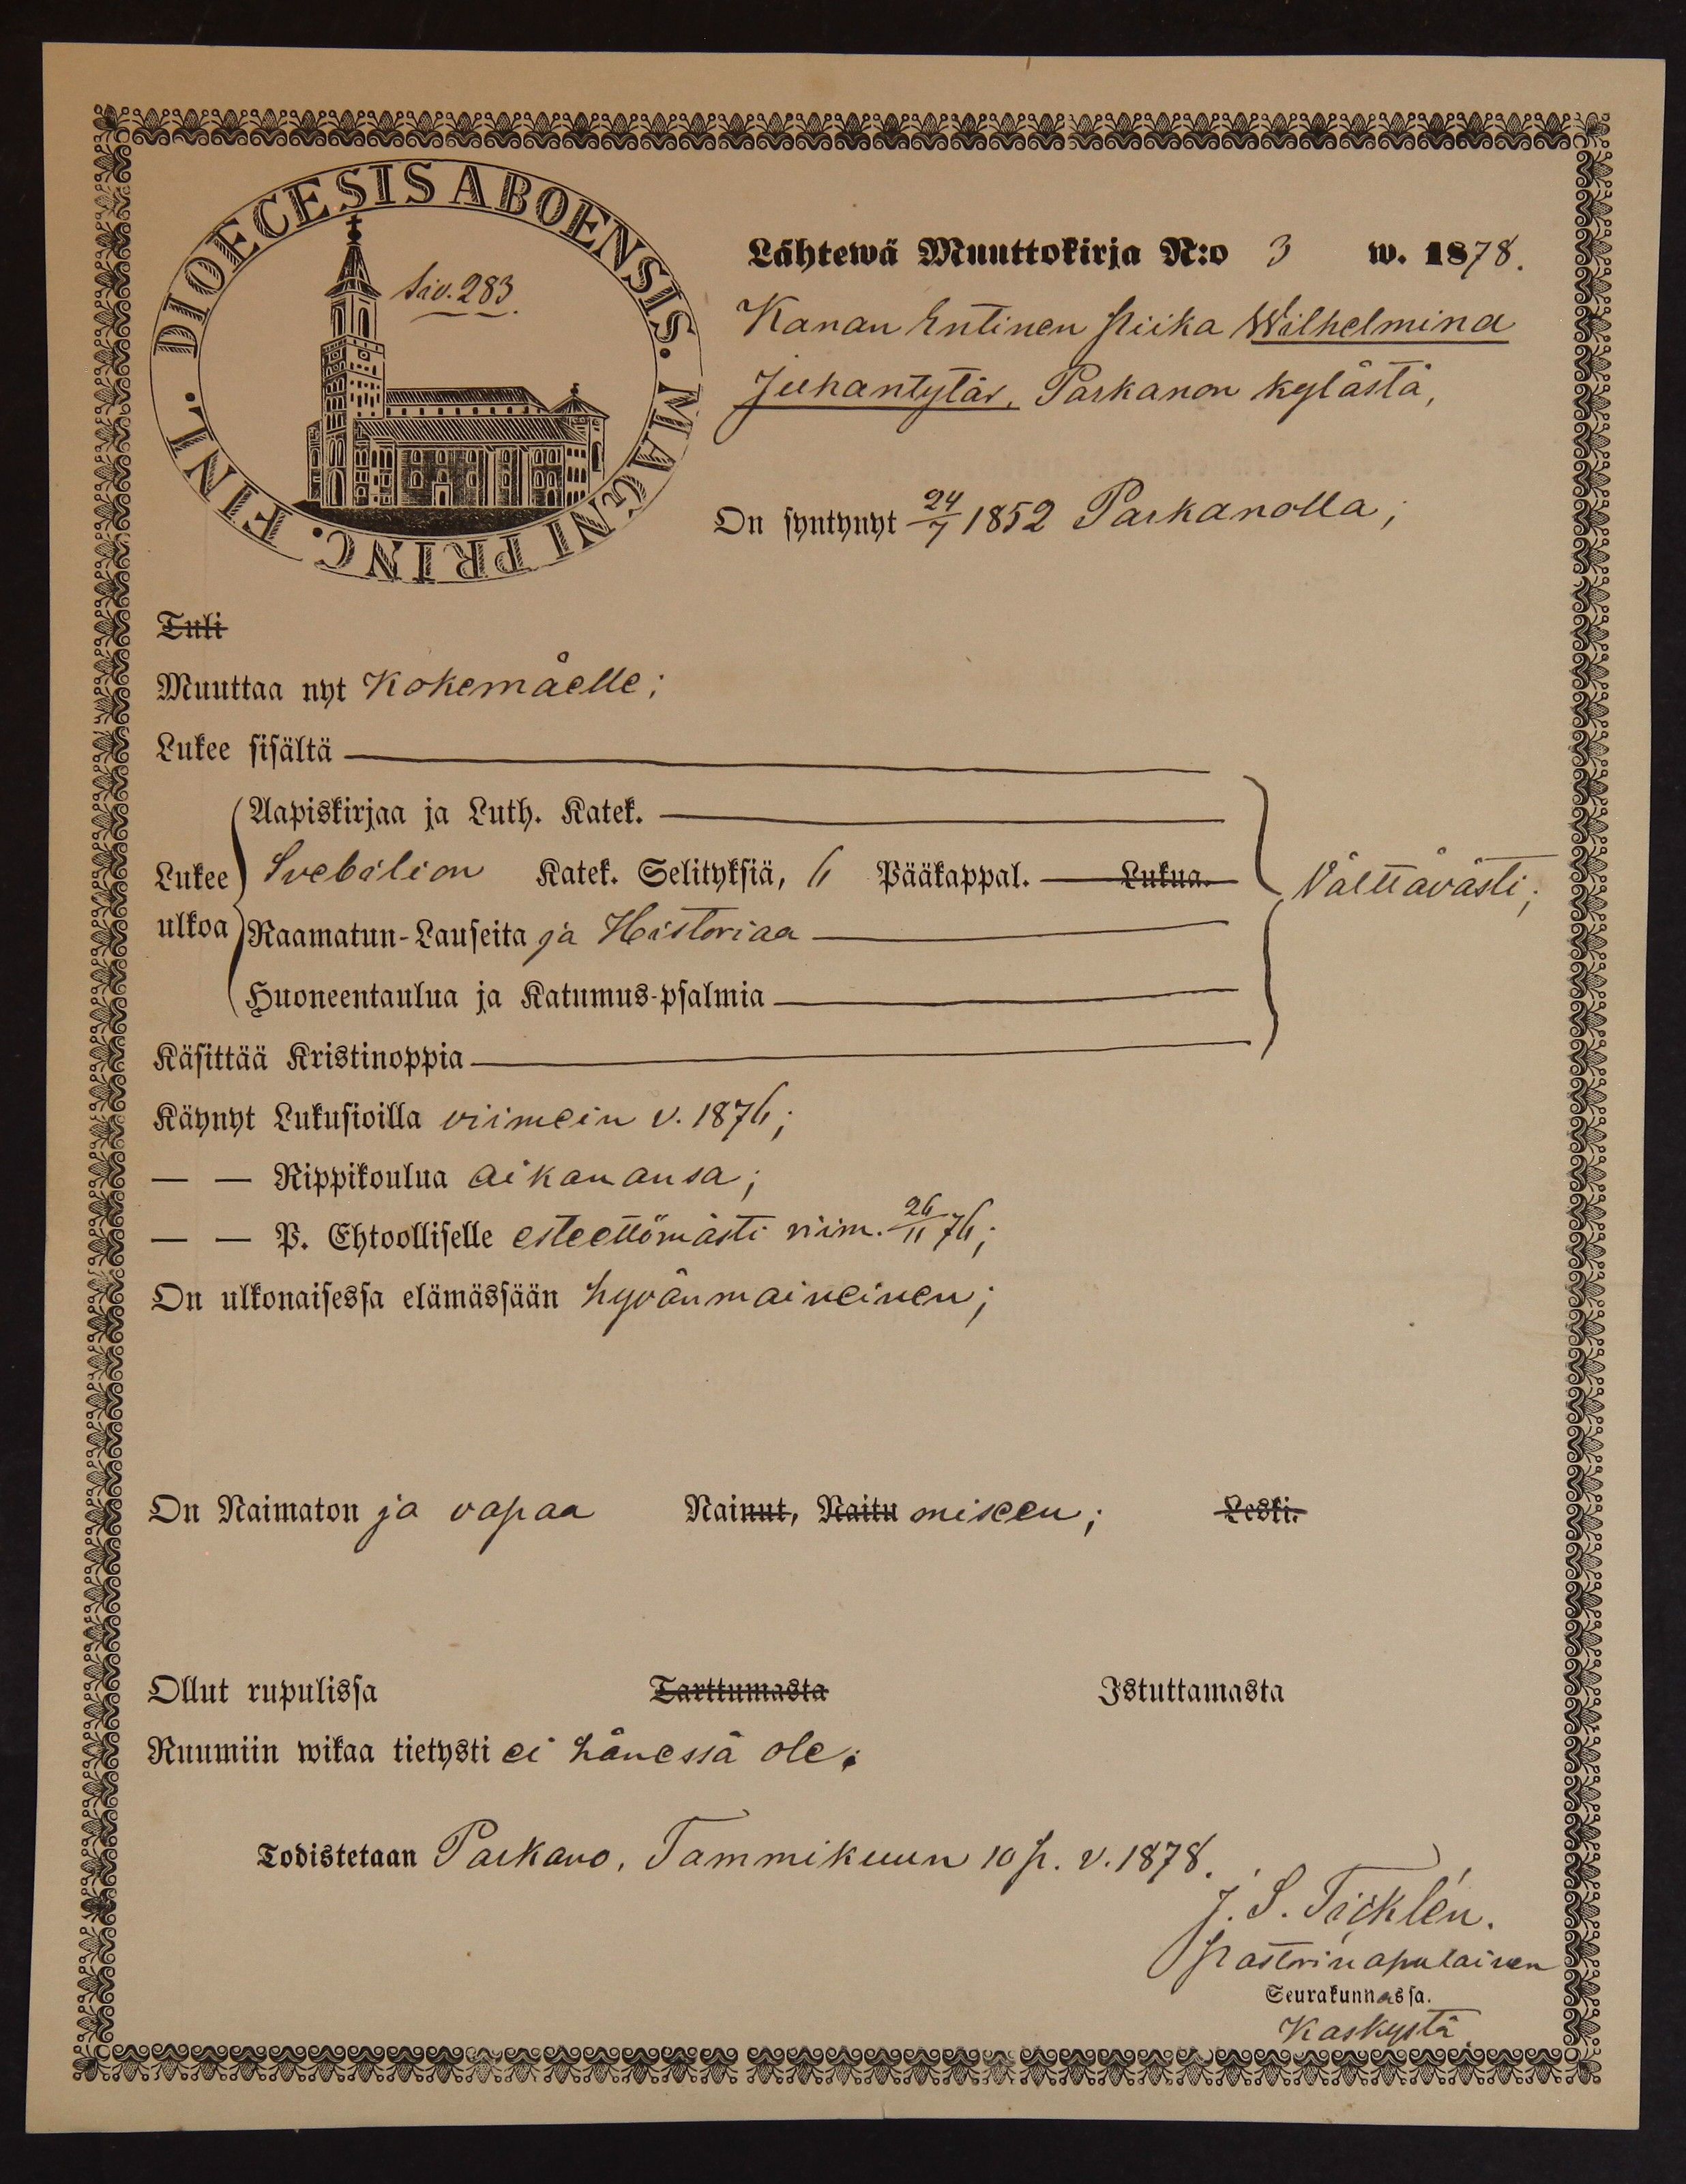 DIOECESIS ABOENSIS. MAGNI PRINC. FINL.
Siv. 283.
Lähtewä Muuttokirja N:o 3 w. 1878.
Kanan Entinen piika Wilhelmina
Juhantytär, Parkanon kylästä,
On syntynyt 24/7 1852 Parkanolla;
Tuli
Muuttaa nyt Kokemäelle;
Lukee sisältä
Aapiskirjaa ja Luth. Katek.
Lukee ulkoa Svebilion Katek. Selityksiä, 6 Pääkappal. Lukua. Välttävästi;
Raamatun-Lauseita ja Historiaa
Huoneentaulua ja Katumus-psalmia
Käsittää Kristinoppia
Käynyt Lukusioilla viimein v. 1876;
— — Rippikoulua aikanansa;
— — P. Ehtoolliselle esteettömästi viim. 26/11 76;
On ulkonaisessa elämässään hyvänmaineinen;
On Naimaton ja vapaa Nainut, Naitu miseen; Leski.
Ollut rupulissa Tarttumasta Istuttamasta
Ruumiin wikaa tietysti ei hänessä ole;
Todistetaan Parkano, Tammikuun 10 p. v. 1878.
J. S.
Pastorin apulainen
Seurakunnassa.
Käskystä